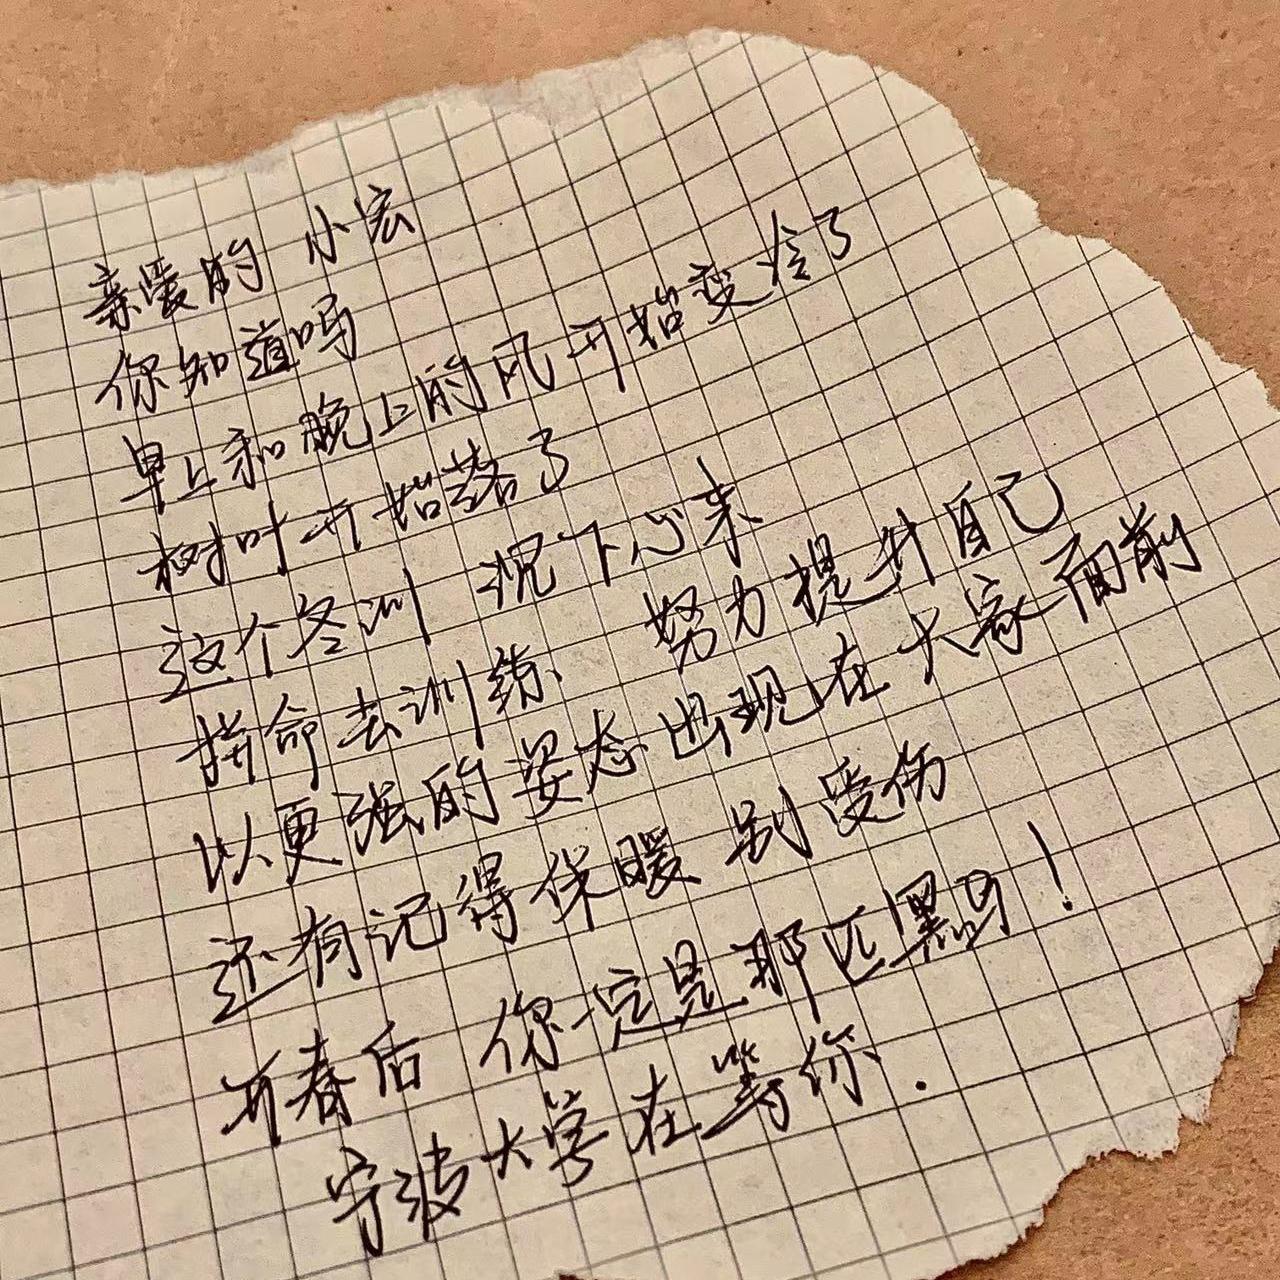 亲爱的 小宏
你知道吗
早上和晚上的风开始变冷了
树叶开始落了
这个冬训 沉下心来
拼命去训练、努力提升自己
以更强的姿态出现在大家面前
还有记得保暖 别受伤
开春后 你一定是那匹黑马！
宁波大学在等你.